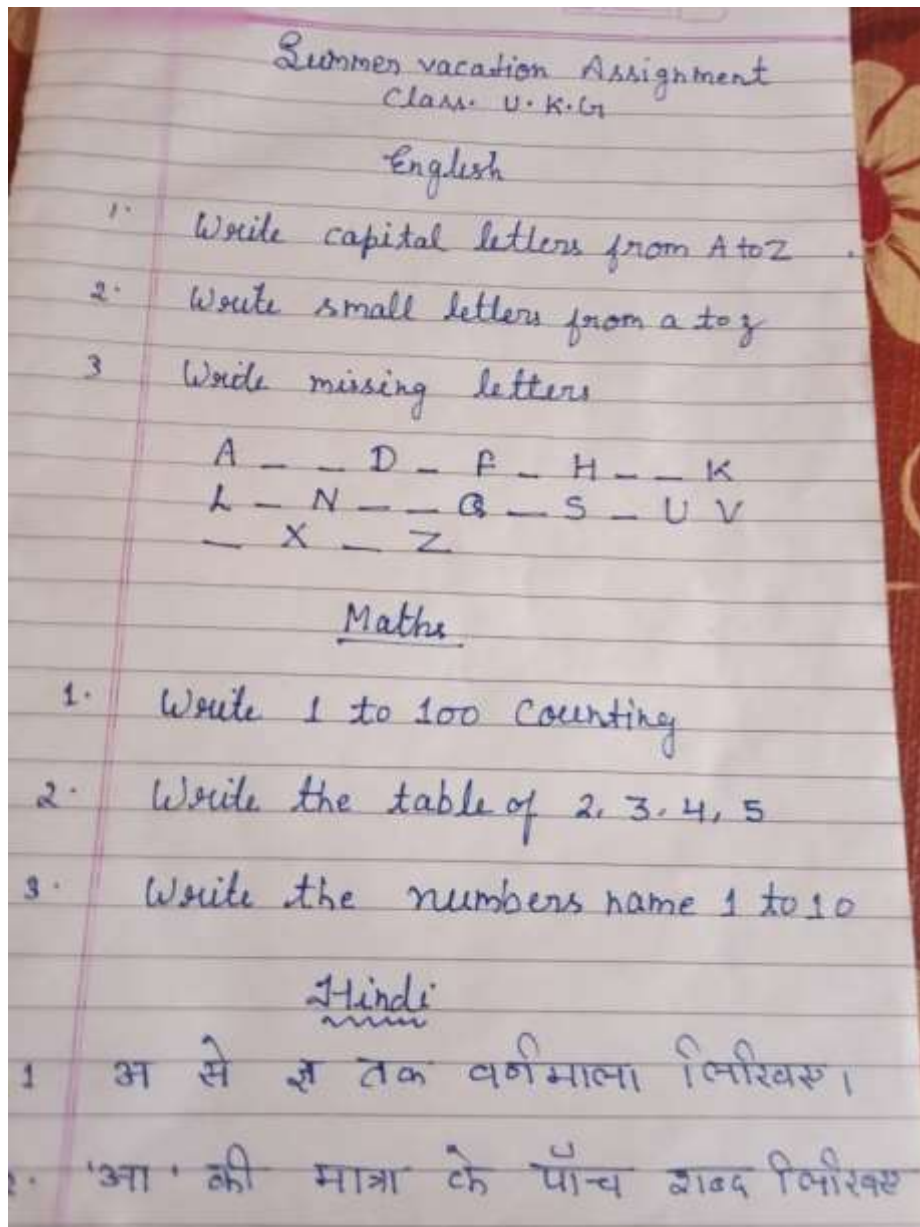 Summer vacation Assignment
Class. U.K.G
English
1. Write capital letters from A to Z
2. Write small letters from a to z
3 Write missing letters
A _ _ D _ F _ H _ _ K
L _ N _ _ Q _ S _ U V
_ X _ Z
Maths
1. Write 1 to 100 Counting
2. Write the table of 2, 3, 4, 5
3. Write the numbers name 1 to 10
Hindi
1 अ से ज्ञ तक वर्णमाला लिखिए।
2. 'आ' की मात्रा के पाँच शब्द लिखिए